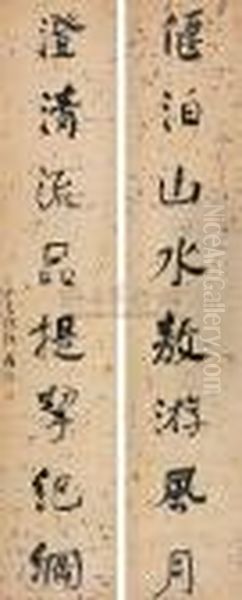 偃泊山水敖游風月
澄清流品提挈紀綱
NiceArtGallery.com